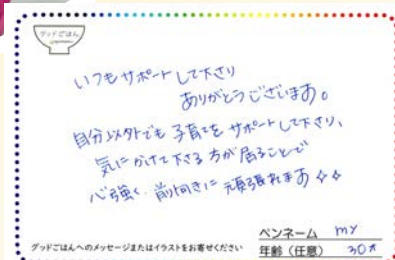 グッドごはん
いつもサポートして下さり
ありがとうございます。
自分以外でも子育てをサポートして下さり、
気にかけて下さる方が居ることで
心強く、前向きに頑張れます✧✧
グッドごはんへのメッセージまたはイラストをお寄せください
ペンネーム my
年齢（任意） 30才